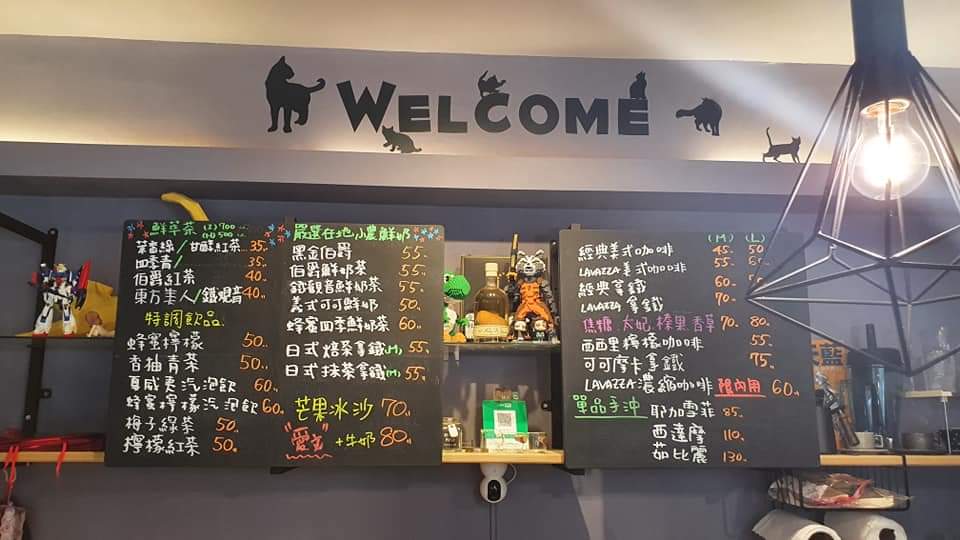 WELCOME
鮮萃茶 (L) 700 (M) 500
茉香綠/甘醇紅茶 35.
四季青/ 35.
伯爵紅茶 40.
東方美人/鐵觀音 40.
特調飲品
蜂蜜檸檬 50.
香柚青茶 50.
夏威夷汽泡飲 60.
蜂蜜檸檬汽泡飲 60.
梅子綠茶 50.
檸檬紅茶 50.
嚴選在地小農鮮奶
黑金伯爵 55.
伯爵鮮奶茶 55.
鐵観音鮮奶茶 55.
美式可可鮮奶 50.
蜂蜜四季鮮奶茶 60.
日式焙茶拿鐵(M) 55.
日式抹茶拿鐵(M) 55.
芒果冰沙 70.
"愛文" +牛奶 80.
(M) (L)
經典美式咖啡 45. 50
LAVAZZA美式咖啡 55- 60
經典拿鐵 60-
LAVAZZA 拿鐵 70-
焦糖.太妃.榛果.香草 70. 80.
西西里檸檬咖啡 55.
可可摩卡拿鐵 75.
LAVAZZA濃縮咖啡 限內用 60.
單品手沖 耶加雪菲 85.
西達摩 110.
茹比麗 130.